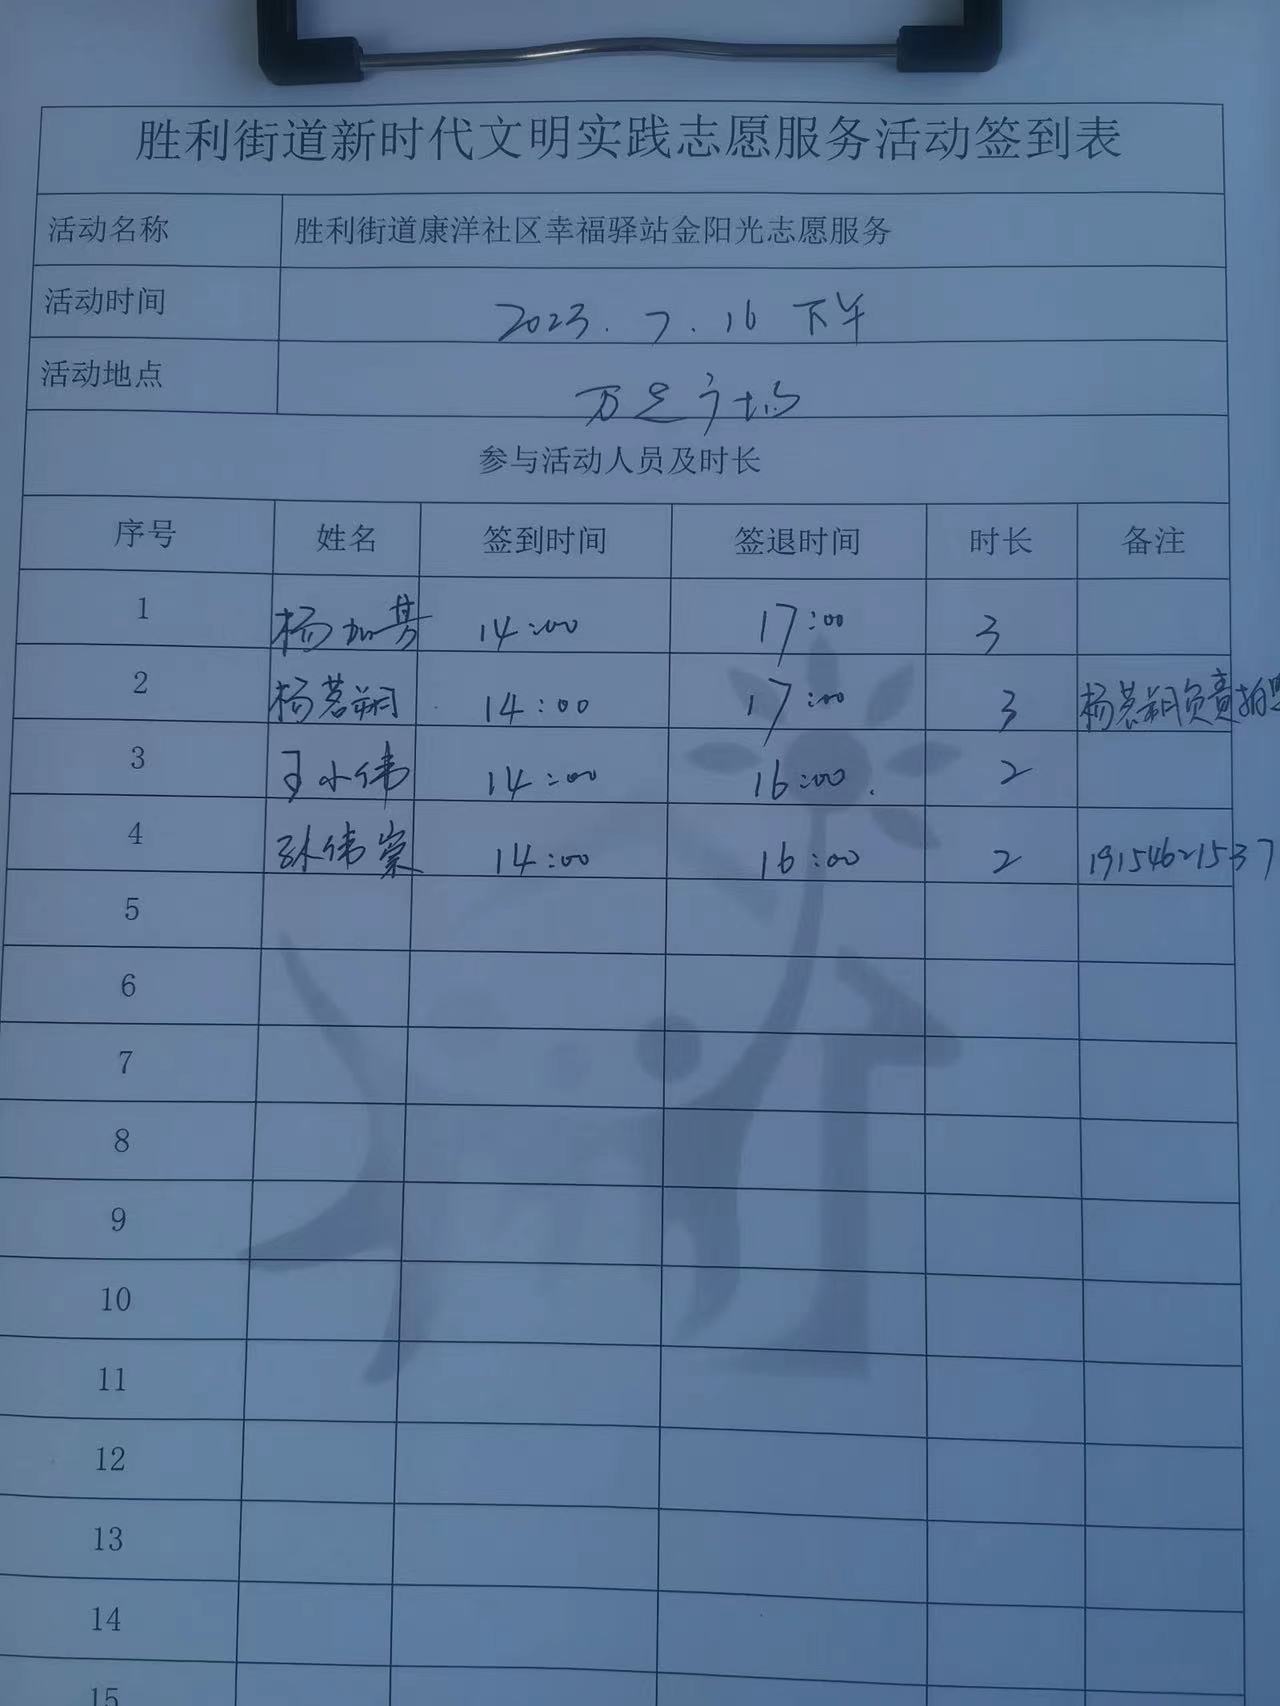 胜利街道新时代文明实践志愿服务活动签到表
活动名称 胜利街道康洋社区幸福驿站金阳光志愿服务
活动时间 2023.7.16 下午
活动地点 万达广场
参与活动人员及时长
序号 姓名 签到时间 签退时间 时长 备注
1 杨 14:00 17:00 3
2 杨茗朔 14:00 17:00 3 杨茗朔负责拍
3 王小伟 14:00 16:00 2
4 孙伟崇 14:00 16:00 2 19154621537
5
6
7
8
9
10
11
12
13
14
15